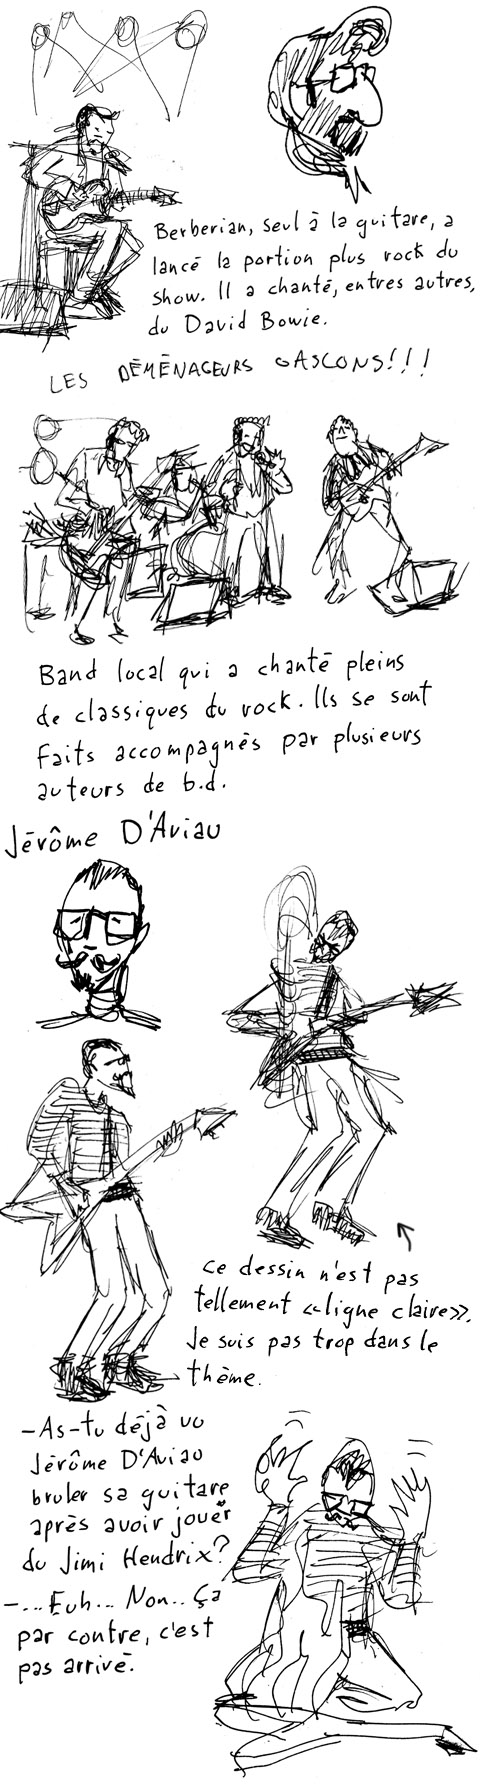 Berberian, seul à la guitare, a
lancé la portion plus rock du
show. Il a chanté, entres autres,
du David Bowie.
LES DÉMÉNAGEURS GASCONS!!!
Band local qui a chanté pleins
de classiques du rock. Ils se sont
faits accompagnés par plusieurs
auteurs de b.d.
Jérôme D'Aviau
Ce dessin n'est pas
tellement «ligne claire».
Je suis pas trop dans le
thème.
-As-tu déjà vu
Jérôme D'Aviau
bruler sa guitare
après avoir jouer
du Jimi Hendrix?
-...Euh... Non.. Ça
par contre, c'est
pas arrivé.